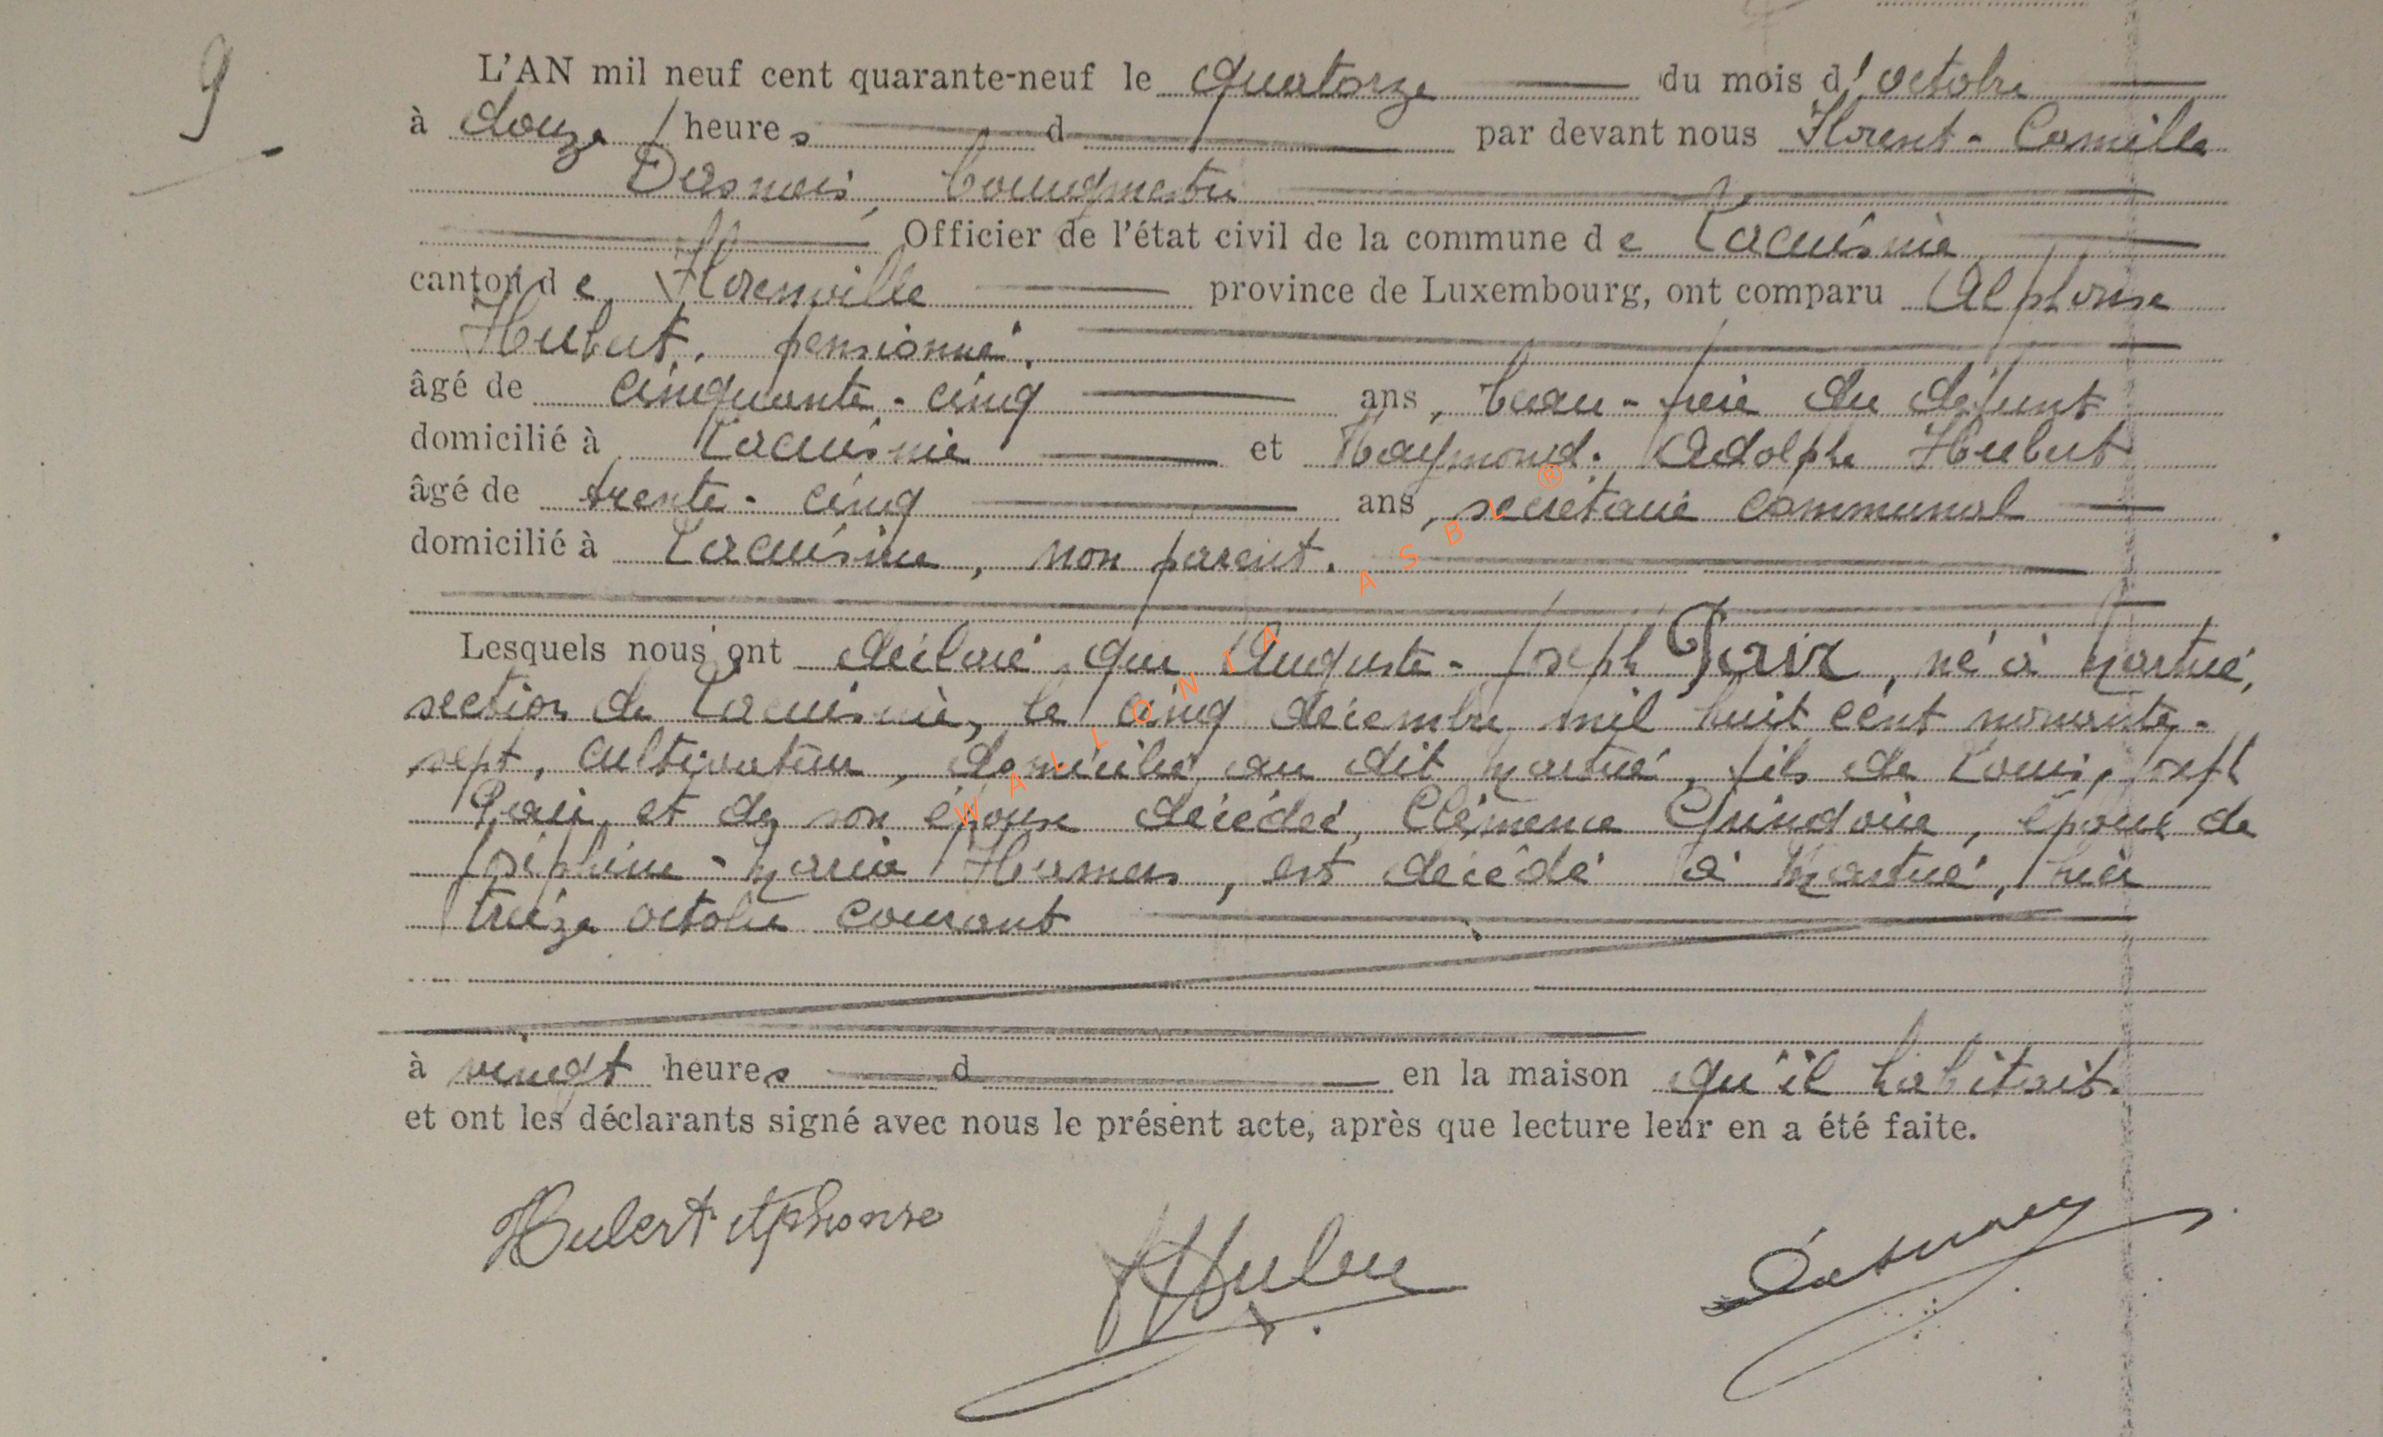 9
L'AN mil neuf cent quarante-neuf le quatorze du mois d'octobre
à douze heures d par devant nous Florent-Camille
Dasnois, bourgmestre
Officier de l'état civil de la commune de Lacuisine
canton de Florenville province de Luxembourg, ont comparu Alphonse
Hubert, pensionné,
âgé de cinquante-cinq ans, beau-frère du défunt
domicilié à Lacuisine et Raymond-Adolphe Hubert
âgé de trente-cinq ans, secrétaire communal
domicilié à Lacuisine, non parent.
Lesquels nous ont déclaré que Auguste-Joseph , né à Martué,
section de Lacuisine, le cinq décembre mil huit cent nonante-
sept, cultivateur, domicilié au dit Martué, fils de Louis, Joseph
et de son épouse décédée, Clémence , époux de
Joséphine-Maria , est décédé à Martué, hier
treize octobre courant
à vingt heures d en la maison qu'il habitait.
et ont les déclarants signé avec nous le présent acte, après que lecture leur en a été faite.
Hubert Alphonse
WALLONIA ASBL ®